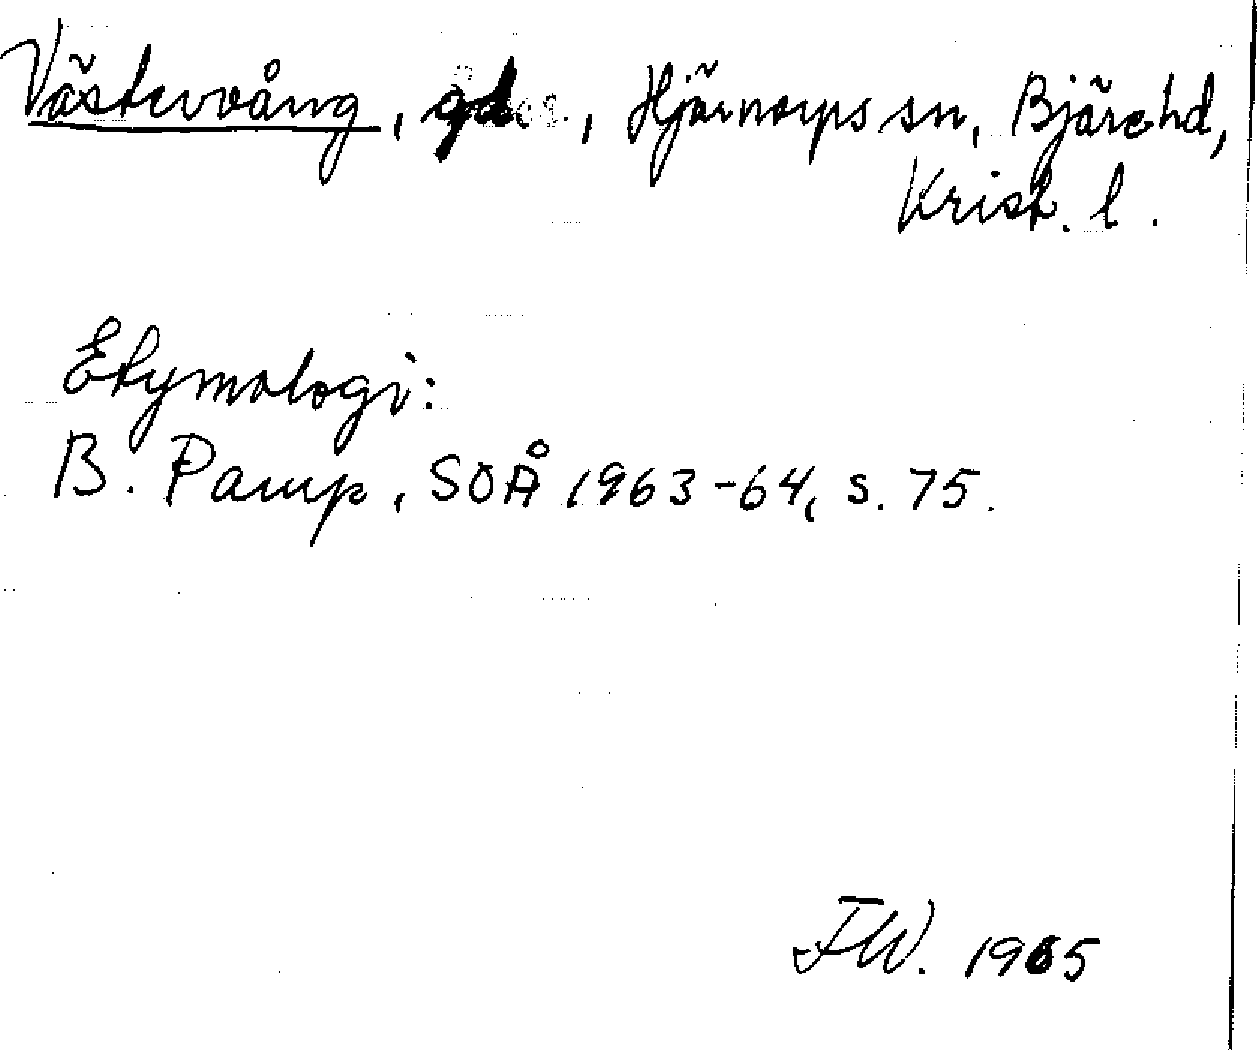 Västervång, gd, Hjärnarps sn, Bjäre hd,
Krist. l.
Etymologi:
B. Pamp, SOÅ 1963-64, s. 75.
FW. 1965